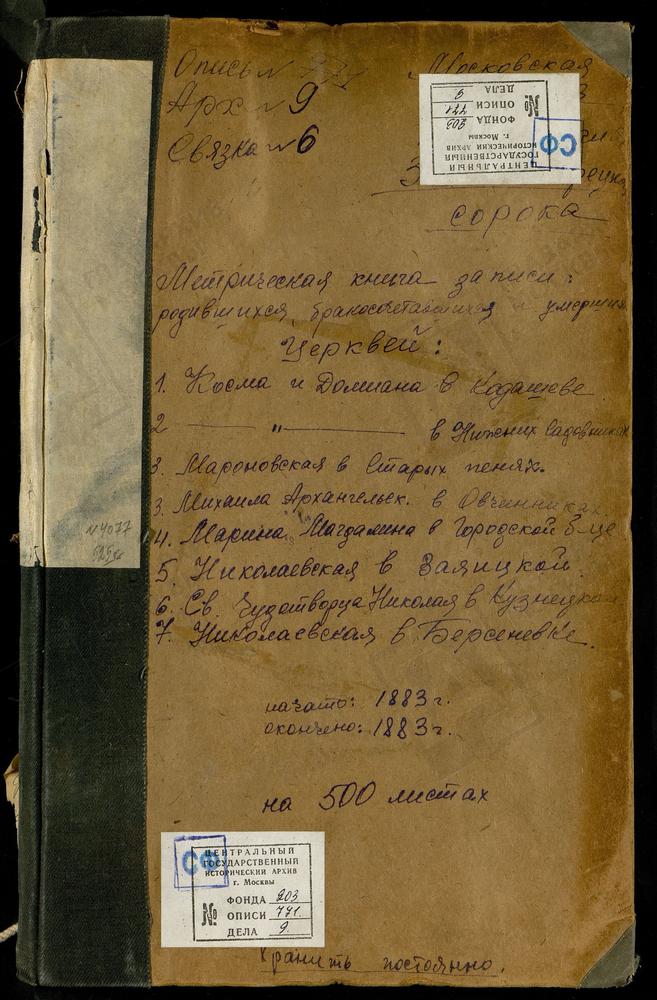 Опись № 771 Московская
Арх № 9
Связка № 6
ЦЕНТРАЛЬНЫЙ
ГОСУДАРСТВЕННЫЙ
ИСТОРИЧЕСКИЙ АРХИВ
г. Москвы
№
ФОНДА 203
ОПИСИ 771
ДЕЛА 9
СФ
сорока
Метрическая книга записи:
родившихся, бракосочетавшихся и умерших
Церквей:
1. Косма и Домиана в Кадашеве
2 —— " —— в Нижних Садовниках
3. Мароновская в Старых пенях.
3. Михаила Архангельск. в Овчинниках.
4. Марина Магдалина в Городской б-це
5. Николаевская в Заяицкой.
6. Св. Чудотворца Николая в Кузнецкой
7. Николаевская в Берсеневке.
№ 4077
начато: 1883 г.
окончено: 1883 г.
на 500 листах
СФ
ЦЕНТРАЛЬНЫЙ
ГОСУДАРСТВЕННЫЙ
ИСТОРИЧЕСКИЙ АРХИВ
г. Москвы
№
ФОНДА 203
ОПИСИ 771.
ДЕЛА 9.
Хранить постоянно.